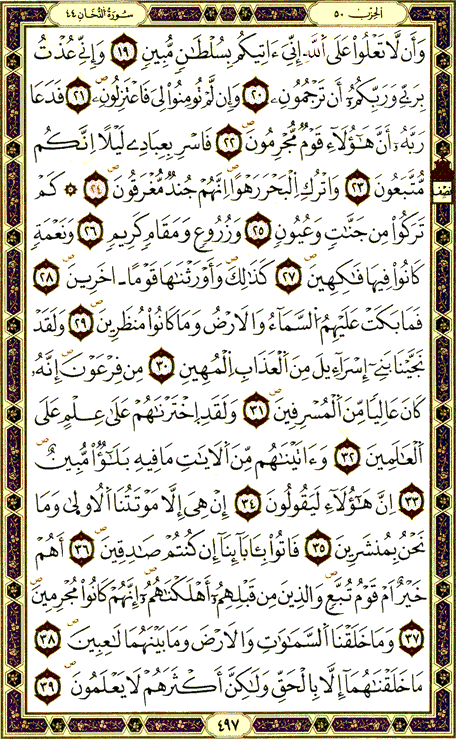 الحزب ٥٠
سورة الدخان ٤٤
وَأَن لَّا تَعْلُوا۟ عَلَى اَ۬للَّهِ إِنِّيَ ءَاتِيكُم بِسُلْطَٰنٖ مُّبِينٖ ١٩ وَإِنِّے عُذْتُ
بِرَبِّے وَرَبِّكُمُۥٓ أَن تَرْجُمُونِۦ ٢٠ وَإِن لَّمْ تُومِنُوا۟ لِى فَاعْتَزِلُونِۦ ٢١ فَدَعَا
رَبَّهُۥٓ أَنَّ هَٰٓؤُلَآءِ قَوْمٞ مُّجْرِمُونَ ٢٢ فَاسْرِ بِعِبَادِے لَيْلًا اِنَّكُم
مُّتَّبَعُونَ ٢٣ وَاتْرُكِ اِ۬لْبَحْرَ رَهْوًا اِنَّهُمْ جُندٞ مُّغْرَقُونَ ٢٤ ۞ كَمْ
تَرَكُوا۟ مِن جَنَّٰتٖ وَعُيُونٖ ٢٥ وَزُرُوعٖ وَمَقَامٖ كَرِيمٖ ٢٦ وَنَعْمَةٖ
كَانُوا۟ فِيهَا فَٰكِهِينَ ٢٧ كَذَٰلِكَ وَأَوْرَثْنَٰهَا قَوْمًا ـ اخَرِينَ ٢٨
فَمَا بَكَتْ عَلَيْهِمُ اُ۬لسَّمَآءُ وَالَارْضُ وَمَا كَانُوا۟ مُنظَرِينَ ٢٩ وَلَقَدْ
نَجَّيْنَا بَنِےٓ إِسْرَآءِيلَ مِنَ اَ۬لْعَذَابِ اِ۬لْمُهِينِ ٣٠ مِن فِرْعَوْنَ إِنَّهُۥ
كَانَ عَالِيٗا مِّنَ اَ۬لْمُسْرِفِينَ ٣١ وَلَقَدِ اِ۪خْتَرْنَٰهُمْ عَلَىٰ عِلْمٍ عَلَى
اَ۬لْعَٰلَمِينَ ٣٢ وَءَاتَيْنَٰهُم مِّنَ اَ۬لَايَٰتِ مَا فِيهِ بَلَٰٓؤٞا۟ مُّبِينٌ
٣٣ اِنَّ هَٰٓؤُلَآءِ لَيَقُولُونَ ٣٤ إِنْ هِىَ إِلَّا مَوْتَتُنَا اَ۬لُاولَىٰ وَمَا
نَحْنُ بِمُنشَرِينَ ٣٥ فَاتُوا۟ بِـَٔابَآئِنَآ إِن كُنتُمْ صَٰدِقِينَ ٣٦ أَهُمْ
خَيْرٌ اَمْ قَوْمُ تُبَّعٖ وَالذِينَ مِن قَبْلِهِمُۥٓ أَهْلَكْنَٰهُمُۥٓ إِنَّهُمْ كَانُوا۟ مُجْرِمِينَ
٣٧ وَمَا خَلَقْنَا اَ۬لسَّمَٰوَٰتِ وَالَارْضَ وَمَا بَيْنَهُمَا لَٰعِبِينَ ٣٨
مَا خَلَقْنَٰهُمَآ إِلَّا بِالْحَقِّ وَلَٰكِنَّ أَكْثَرَهُمْ لَا يَعْلَمُونَ ٣٩
٤٩٧